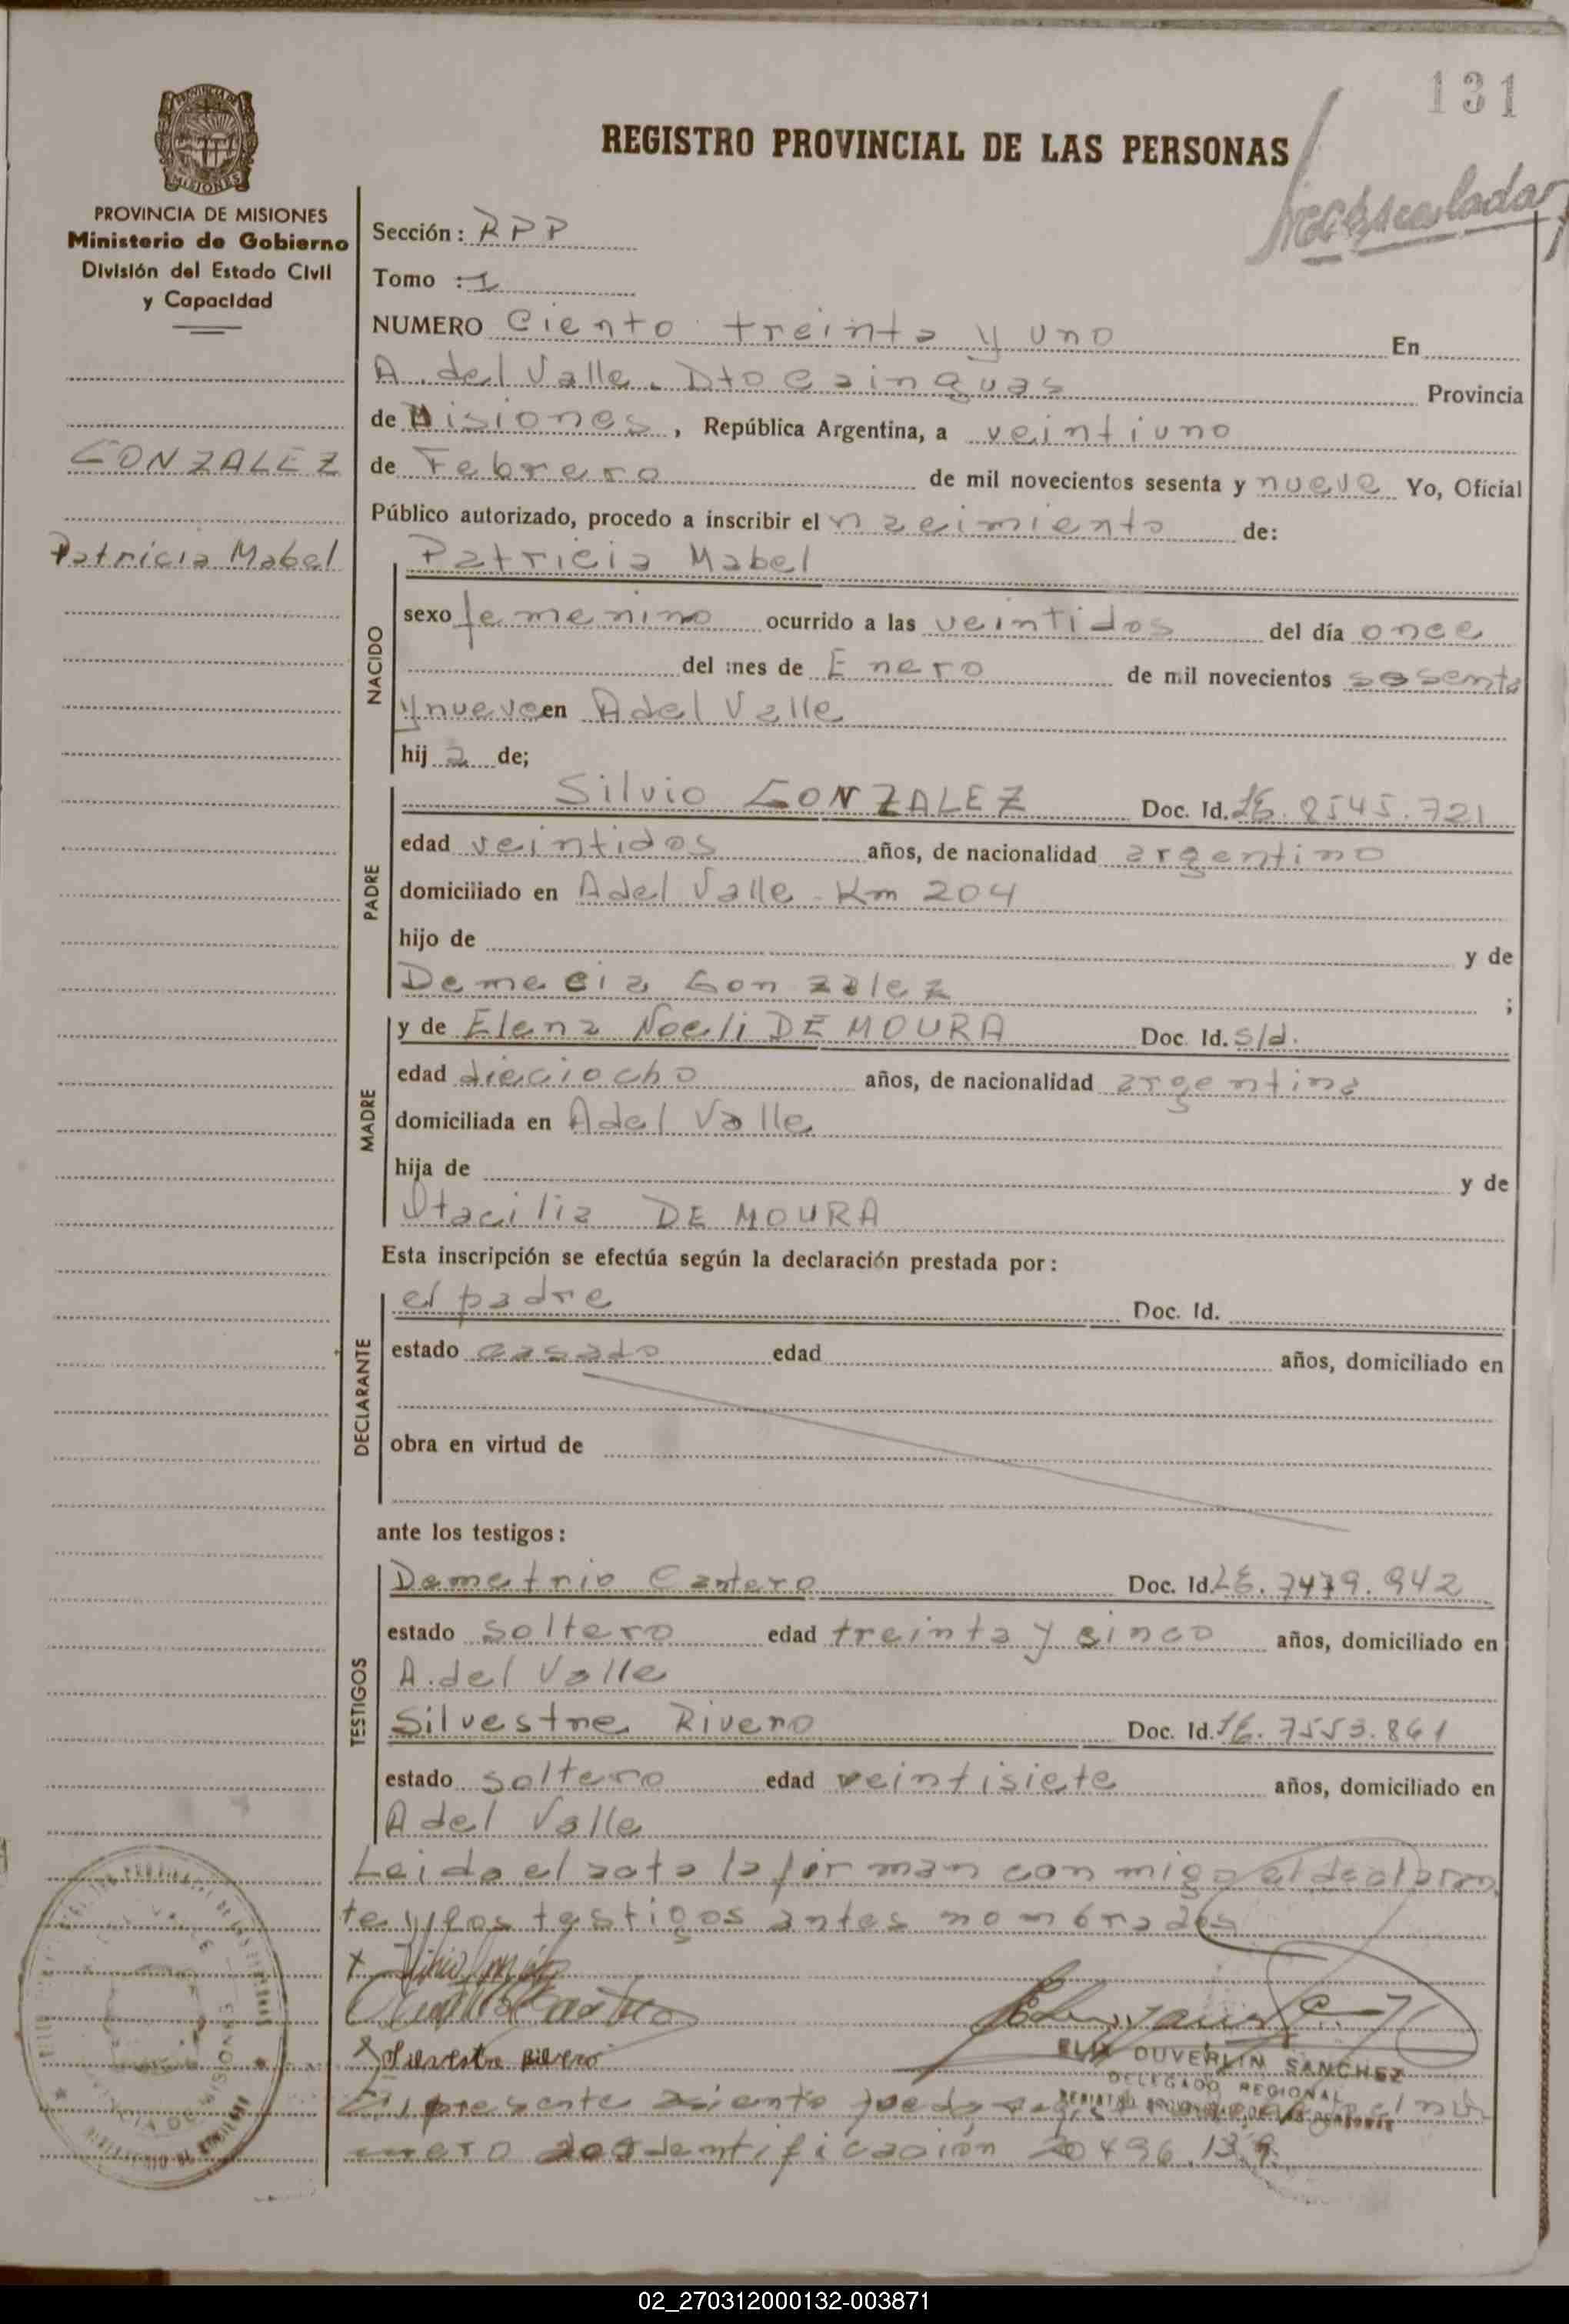 131
REGISTRO PROVINCIAL DE LAS PERSONAS
PROVINCIA DE MISIONES
Ministerio de Gobierno
División del Estado Civil
y Capacidad
GONZALEZ
Patricia Mabel
Sección: RPP
Tomo : 1
NUMERO Ciento treinta y uno En
A. del Valle. Dto Cainguas Provincia
de Misiones, República Argentina, a veintiuno
de Febrero de mil novecientos sesenta y nueve Yo, Oficial
Público autorizado, procedo a inscribir el nacimiento de:
NACIDO
Patricia Mabel
sexo femenino ocurrido a las veintidos del día once
del mes de Enero de mil novecientos sesenta
y nueve en A del Valle
hij a de;
PADRE
Silvio GONZALEZ Doc. Id. LE. 8545.721
edad veintidos años, de nacionalidad argentino
domiciliado en A del Valle - Km 204
hijo de y de
Demecia Gonzalez ;
MADRE
y de Elena Noeli DE MOURA Doc. Id. s/d.
edad dieciocho años, de nacionalidad argentina
domiciliada en A del Valle
hija de y de
Otacilia DE MOURA
Esta inscripción se efectúa según la declaración prestada por:
DECLARANTE
el padre Doc. Id.
estado casado edad años, domiciliado en
obra en virtud de
ante los testigos:
TESTIGOS
Demetrio Cantero Doc. Id. LE. 7479.942
estado soltero edad treinta y cinco años, domiciliado en
A. del Valle
Silvestre Rivero Doc. Id. LE. 7553.861
estado soltero edad veintisiete años, domiciliado en
A del Valle
Leida el acta la firman con migo el declaran
te y los testigos antes nombrados
Silvestre Rivero
ELIX DUVERLIN SANCHEZ
DELEGADO REGIONAL
El presente asiento queda el nú
mero de identificación 20496.139
02_270312000132-003871